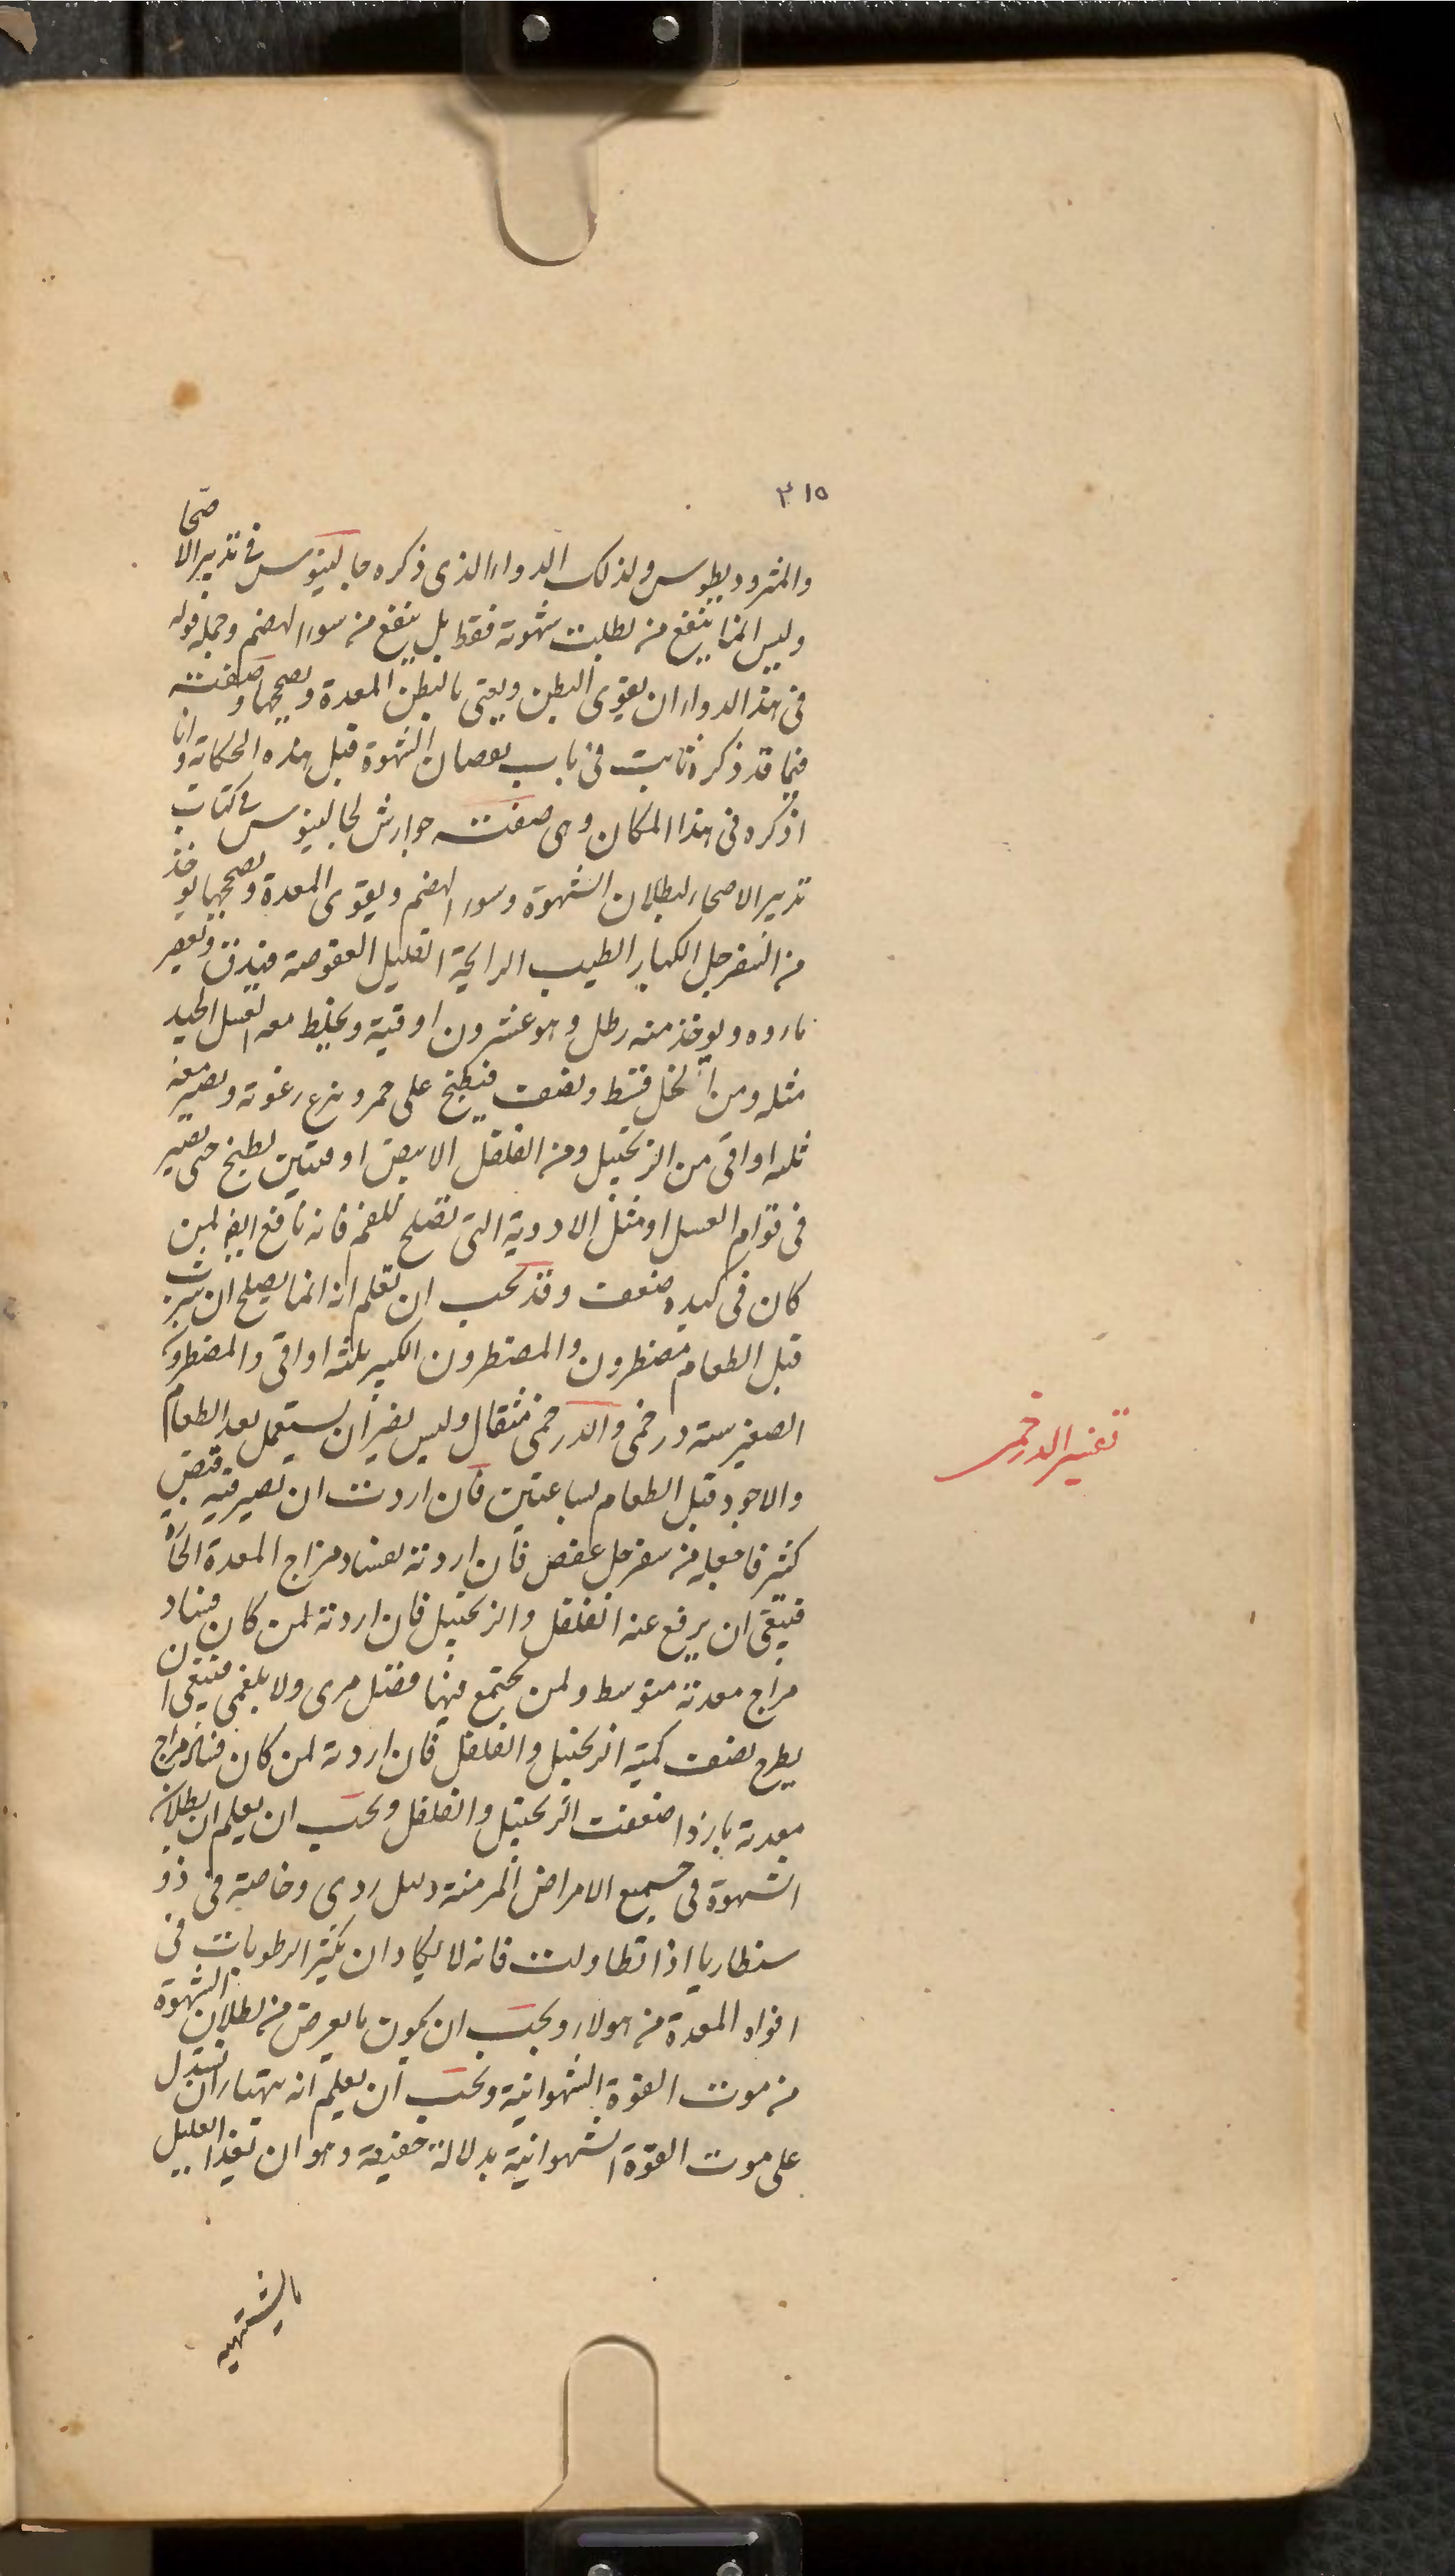 ٣١٥
والمثروديطوس ولذلك الدواء الذى ذكره جالينوس فى تدبير الاصحا
وليس انما ينفع من بطلت شهوته فقط بل ينفع من سوء الهضم وجملة قوله
فى هذا الدواء ان يقوى البطن ويعنى بالبطن المعدة ويصححها وصفته
فيما قد ذكره ثابت فى باب نقصان الشهوة قبل هذه الحكاية وانا
اذكره فى هذا المكان وهى صفت جوارش لجالينوس فى كتاب
تدبير الاصحاء لبطلان الشهوة وسوء الهضم ويقوى المعدة ويصححها يوخذ
من السفرجل الكبار الطيب الرايحة القليل العفوصة فيدق ويعصر
ماوه ويوخذ منه رطل وهو عشرون اوقية ويخلط معه العسل الجيد
مثله ومن الخل قسط ونصف فيطبخ على جمر وينزع رغوته ويصير معه
ثلثه اواقى من الزنجبيل ومن الفلفل الابيض اوقيتين يطبخ حتى يصير
فى قوام العسل او مثل الادوية التى تصلح للفم فانه نافع ايضا لمن
كان فى كبده ضعف وقد يجب ان تعلم انه انما يصلح ان يشرب
قبل الطعام مضطرون والمضطرون الكبير ثلثه اواقى والمضطرون
الصغير سته درخمى والدرخمى مثقال وليس يضر ان يستعمل بعد الطعام
والاجود قبل الطعام بساعتين فان اردت ان يصير فيه قبض
كثير فاجعله من سفرجل عفص فان اردته لفساد مزاج المعدة الحارة
فينبغى ان يرفع عنه الفلفل والزنجبيل فان اردته لمن كان فساد
مزاج معدته متوسط ولمن يجتمع فيها فضل مرى ولا بلغمى فينبغى ان
يطرح نصف كمية الزنجبيل والفلفل فان اردته لمن كان فساد مزاج
معدته باردا ضعفت الزنجبيل والفلفل ويجب ان يعلم ان بطلان
الشهوة فى جميع الامراض المزمنة دليل ردى وخاصة فى ذو
سنطاريا اذا تطاولت فانه لا يكاد ان يكثر الرطوبات فى
افواه المعدة من هولاء ويجب ان يكون ما يعرض من بطلان الشهوة
من موت القوة الشهوانية ويجب ان يعلم انه يتهيا ان نستدل
على موت القوة الشهوانية بدلالة حقيقة وهو ان يغذا العليل
ما يشتهيه
تفسير الدرخمى